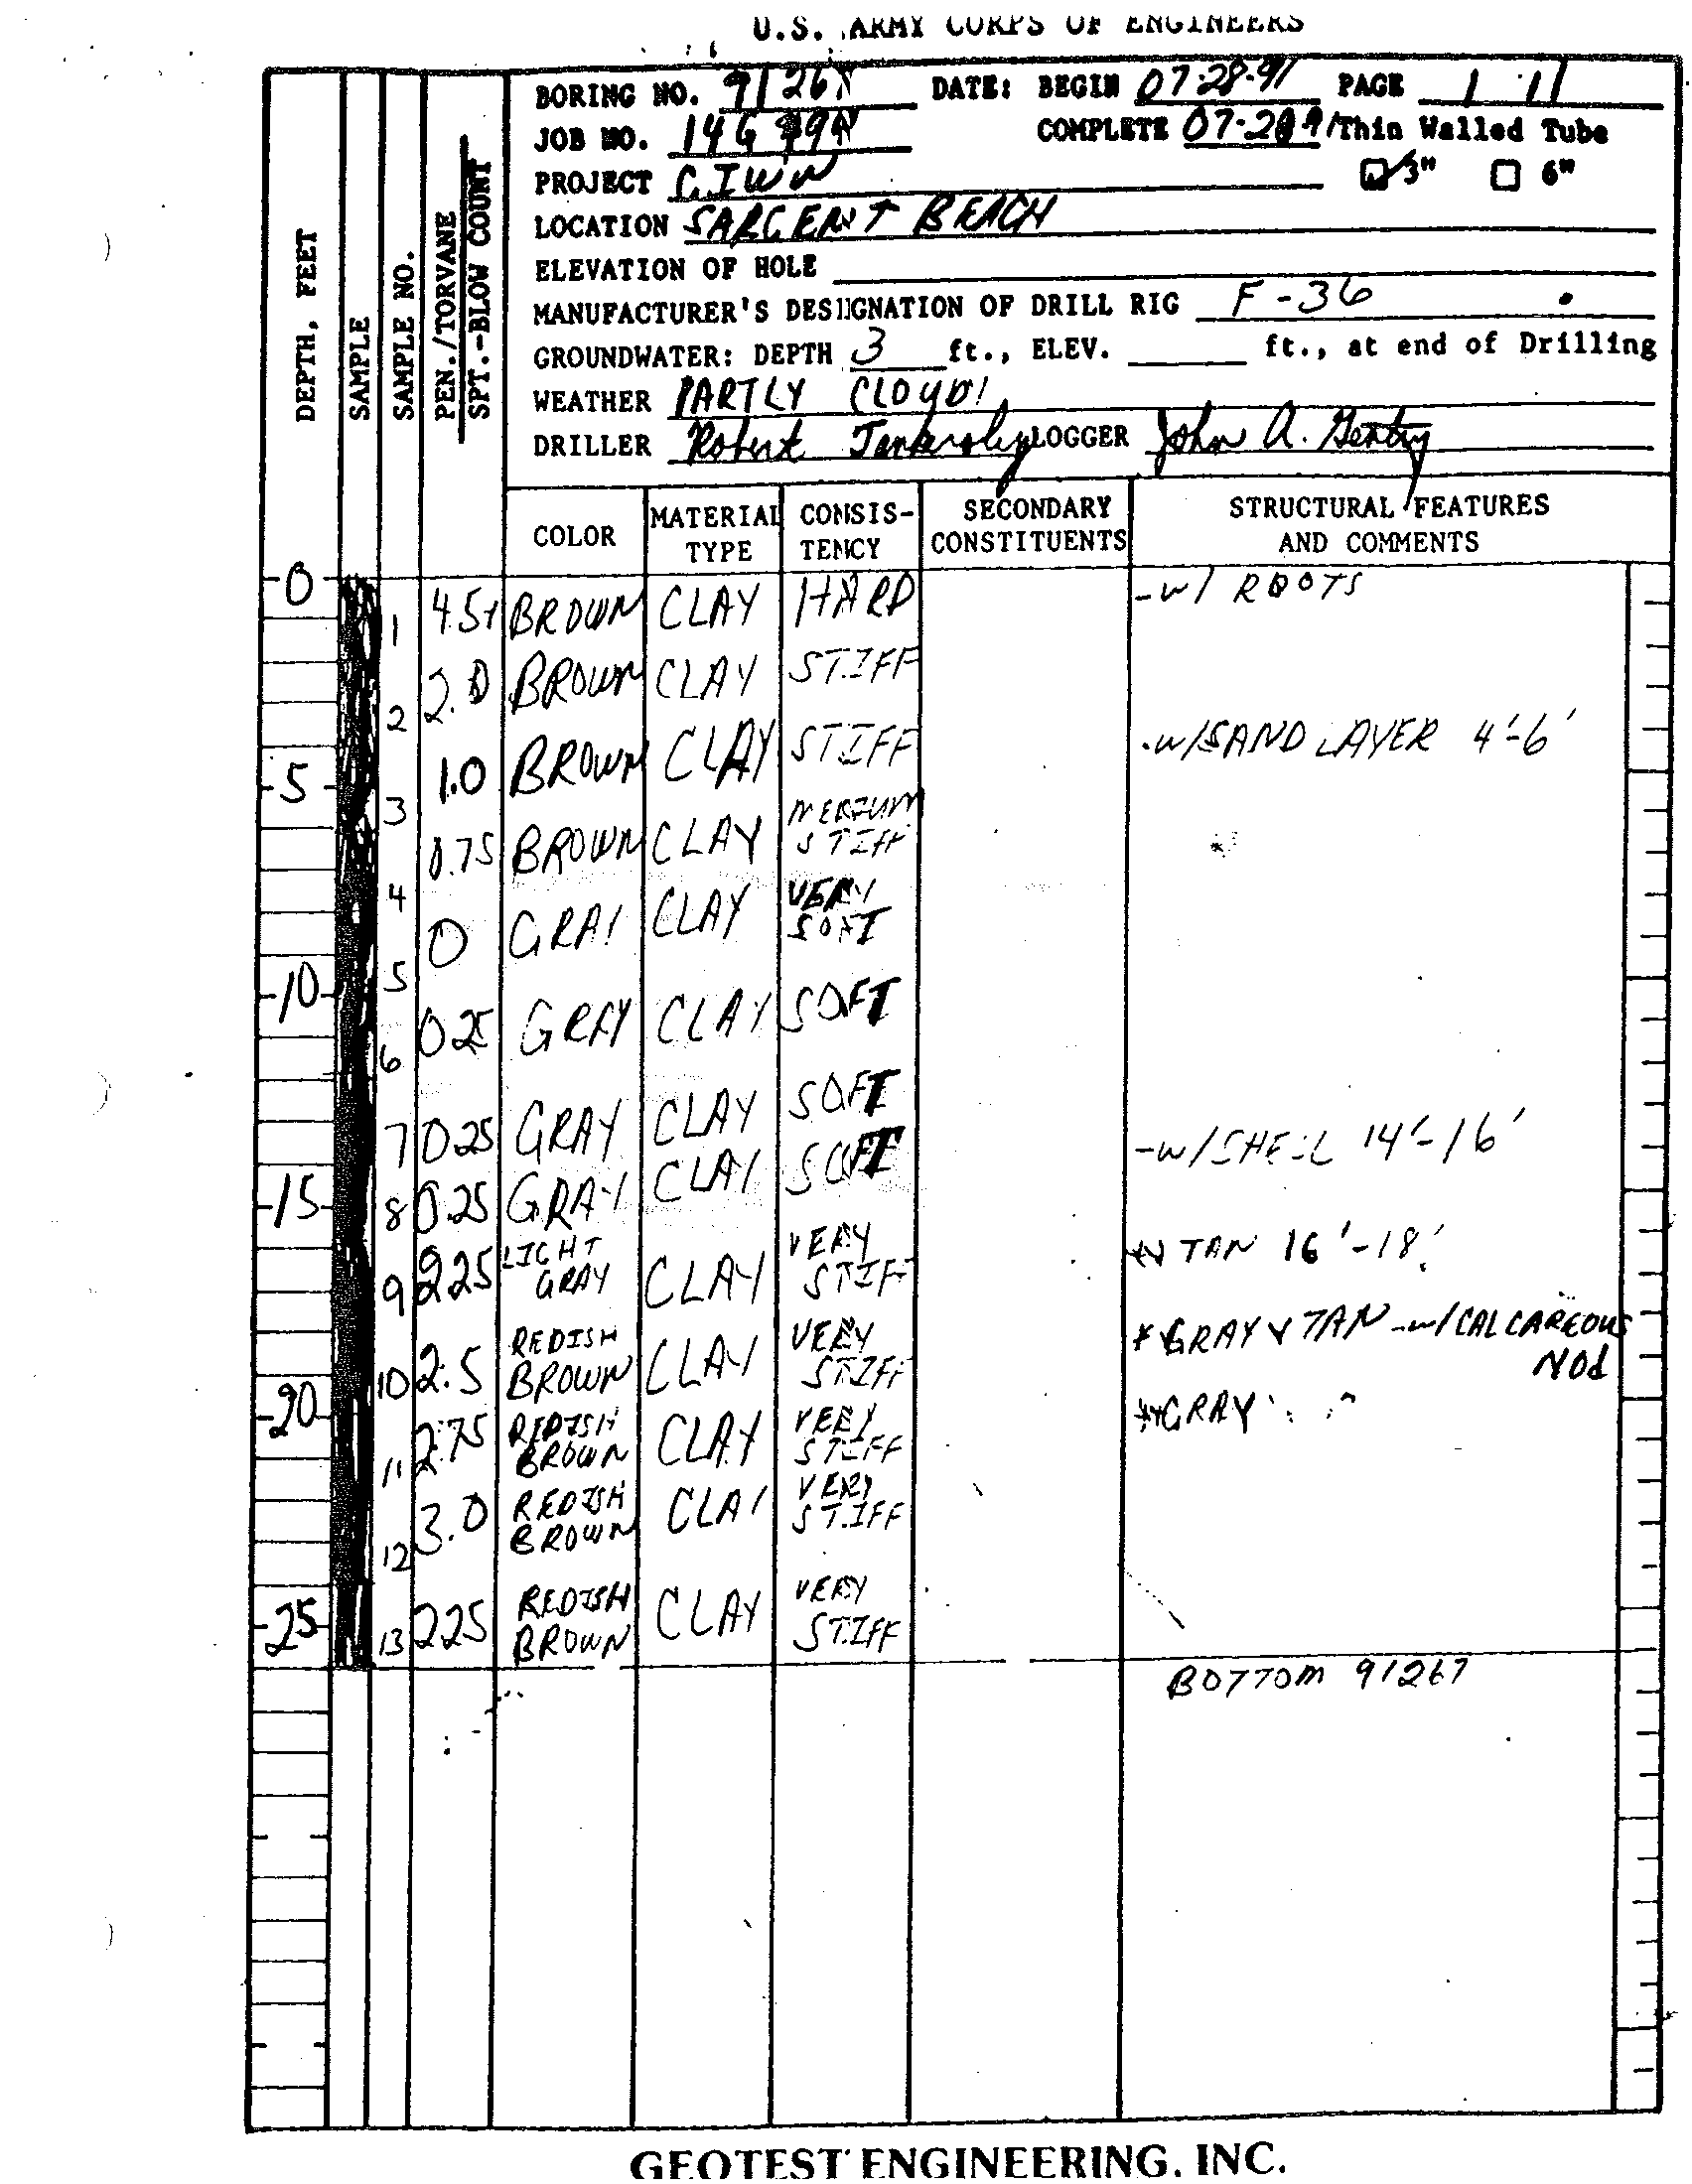 U.S. ARMY CORPS OF ENGINEERS
BORING NO. DATE: BEGIN 07-28-91 PAGE 1
JOB NO. 14G COMPLETE Thin Walled Tube
PROJECT GIWW 3" 6"
LOCATION SARGENT BEACH
ELEVATION OF HOLE
MANUFACTURER'S DESIGNATION OF DRILL RIG F-36
GROUNDWATER: DEPTH 3 ft., ELEV. ft., at end of Drilling
WEATHER PARTLY CLOUDY
DRILLER Robert Tankersley LOGGER John A. Gentry
DEPTH, FEET
SAMPLE
SAMPLE NO.
PEN./TORVANE
SPT.-BLOW COUNT
COLOR MATERIAL TYPE CONSIS-TENCY SECONDARY CONSTITUENTS STRUCTURAL FEATURES AND COMMENTS
0
1 4.5+ BROWN CLAY HARD -W/ ROOTS
2 2.0 BROWN CLAY STIFF
5
3 1.0 BROWN CLAY STIFF -W/SAND LAYER 4'-6'
4 0.75 BROWN CLAY MEDIUM STIFF
5 0 GRAY CLAY VERY SOFT
10
6 0.25 GRAY CLAY SOFT
7 0.25 GRAY CLAY SOFT
15
8 0.25 GRAY CLAY SOFT -W/SHELL 14'-16'
9 2.25 LIGHT GRAY CLAY VERY STIFF TAN 16'-18'
10 2.5 REDISH BROWN CLAY VERY STIFF GRAY TAN -w/CALCAREOUS NOd
20
11 2.75 REDISH BROWN CLAY VERY STIFF GRAY
12 3.0 REDISH BROWN CLAY VERY STIFF
25
13 2.25 REDISH BROWN CLAY VERY STIFF
BOTTOM 91267
GEOTEST ENGINEERING, INC.